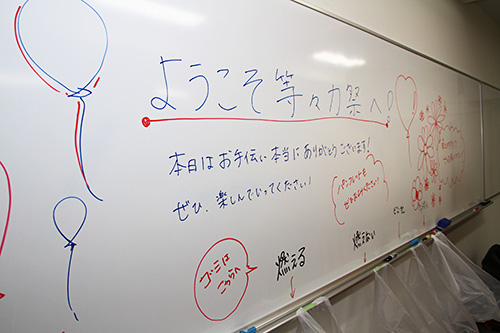 ようこそ等々力祭へ!
本日はお手伝い本当にありがとうございます!
ぜひ、楽しんでいってください!
パンフレットも
ゴミは
こちらへ
燃える
燃えない